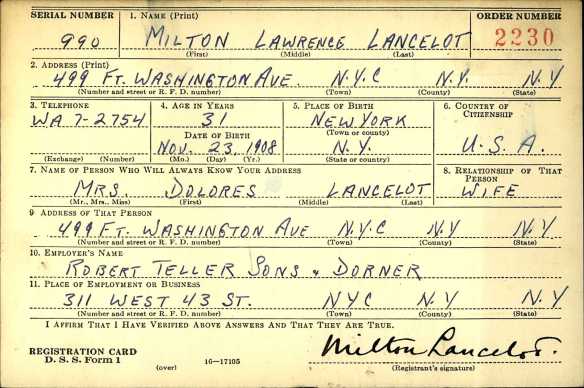 SERIAL NUMBER 1. NAME (Print) ORDER NUMBER
990 MILTON LAWRENCE LANCELOT 2230
(First) (Middle) (Last)
2. ADDRESS (Print)
499 FT. WASHINGTON AVE. N.Y.C N.Y. N.Y
(Number and street or R. F. D. number) (Town) (County) (State)
3. TELEPHONE 4. AGE IN YEARS 5. PLACE OF BIRTH 6. COUNTRY OF CITIZENSHIP
WA 7-2754 31 NEW YORK
DATE OF BIRTH (Town or county)
NOV. 23, 1908 N.Y. U.S.A.
(Exchange) (Number) (Mo.) (Day) (Yr.) (State or country)
7. NAME OF PERSON WHO WILL ALWAYS KNOW YOUR ADDRESS 8. RELATIONSHIP OF THAT PERSON
MRS. DOLORES LANCELOT WIFE
(Mr., Mrs., Miss) (First) (Middle) (Last)
9 ADDRESS OF THAT PERSON
499 FT. WASHINGTON AVE N.Y.C N.Y N.Y
(Number and street or R. F. D. number) (Town) (County) (State)
10. EMPLOYER'S NAME
ROBERT TELLER SONS & DORNER
11. PLACE OF EMPLOYMENT OR BUSINESS
311 WEST 43 ST. NYC N.Y N.Y
(Number and street or R. F. D. number) (Town) (County) (State)
I AFFIRM THAT I HAVE VERIFIED ABOVE ANSWERS AND THAT THEY ARE TRUE.
REGISTRATION CARD
D. S. S. Form 1 16-17105 Milton Lancelot.
(over) (Registrant's signature)